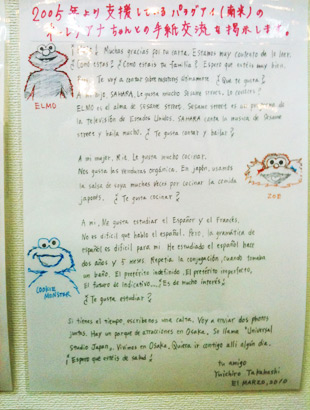 2005年より支援しているパラグアイ(南米)の
ちゃんとの手紙交流を掲示します。
Muchas gracias por tu carta. Estamos muy contento de la leer.
¿Cómo estás? ¿Cómo estás tu familia? Espero que estéis muy bien.
Voy a contar sobre nosotros últimamente. ¿Que te gusta?
A mi hija, SAHARA, Le gusta mucho Sesame street. Le conoces?
ELMO
ELMO es el alma de sesame street. Sesame street es un programa de
la televisión de Estados Unidos. SAHARA canta la musica de Sesame
street y baila mucho. ¿Te gusta cantar y bailar?
A mi mujer, Rie, Le gusta mucho cocinar.
Nos gusta las verduras orgánica. En Japón, usamos
la salsa de soya muchas veces por cocinar la comida
japonés. ¿Te gusta cocinar?
ZOE
A mi, Me gusta estudiar el Español y el Francés.
No es dificil que hablo el español. Pero, la gramática de
español es dificil para mi. He estudiado el español hace
dos años y 5 meses. Repetía la conjugación, cuando tomaba
un baño. El pretérito indefinido. El pretérito imperfecto.
El futuro de indicativo... ¡Es de mucho interés!
¿Te gusta estudiar?
COOKIE
MONSTER
Si tienes el tiempo, escríbenos una carta. Voy a enviar dos photos
juntas. Hay un parque de atracciones en Osaka. Se llama "Universal
Studio Japan". Vivimos en Osaka. Quiero ir contigo allí algún día.
¡Espero que estéis de salud!
tu amigo
Yuichiro Takahashi
MARZO, 2010